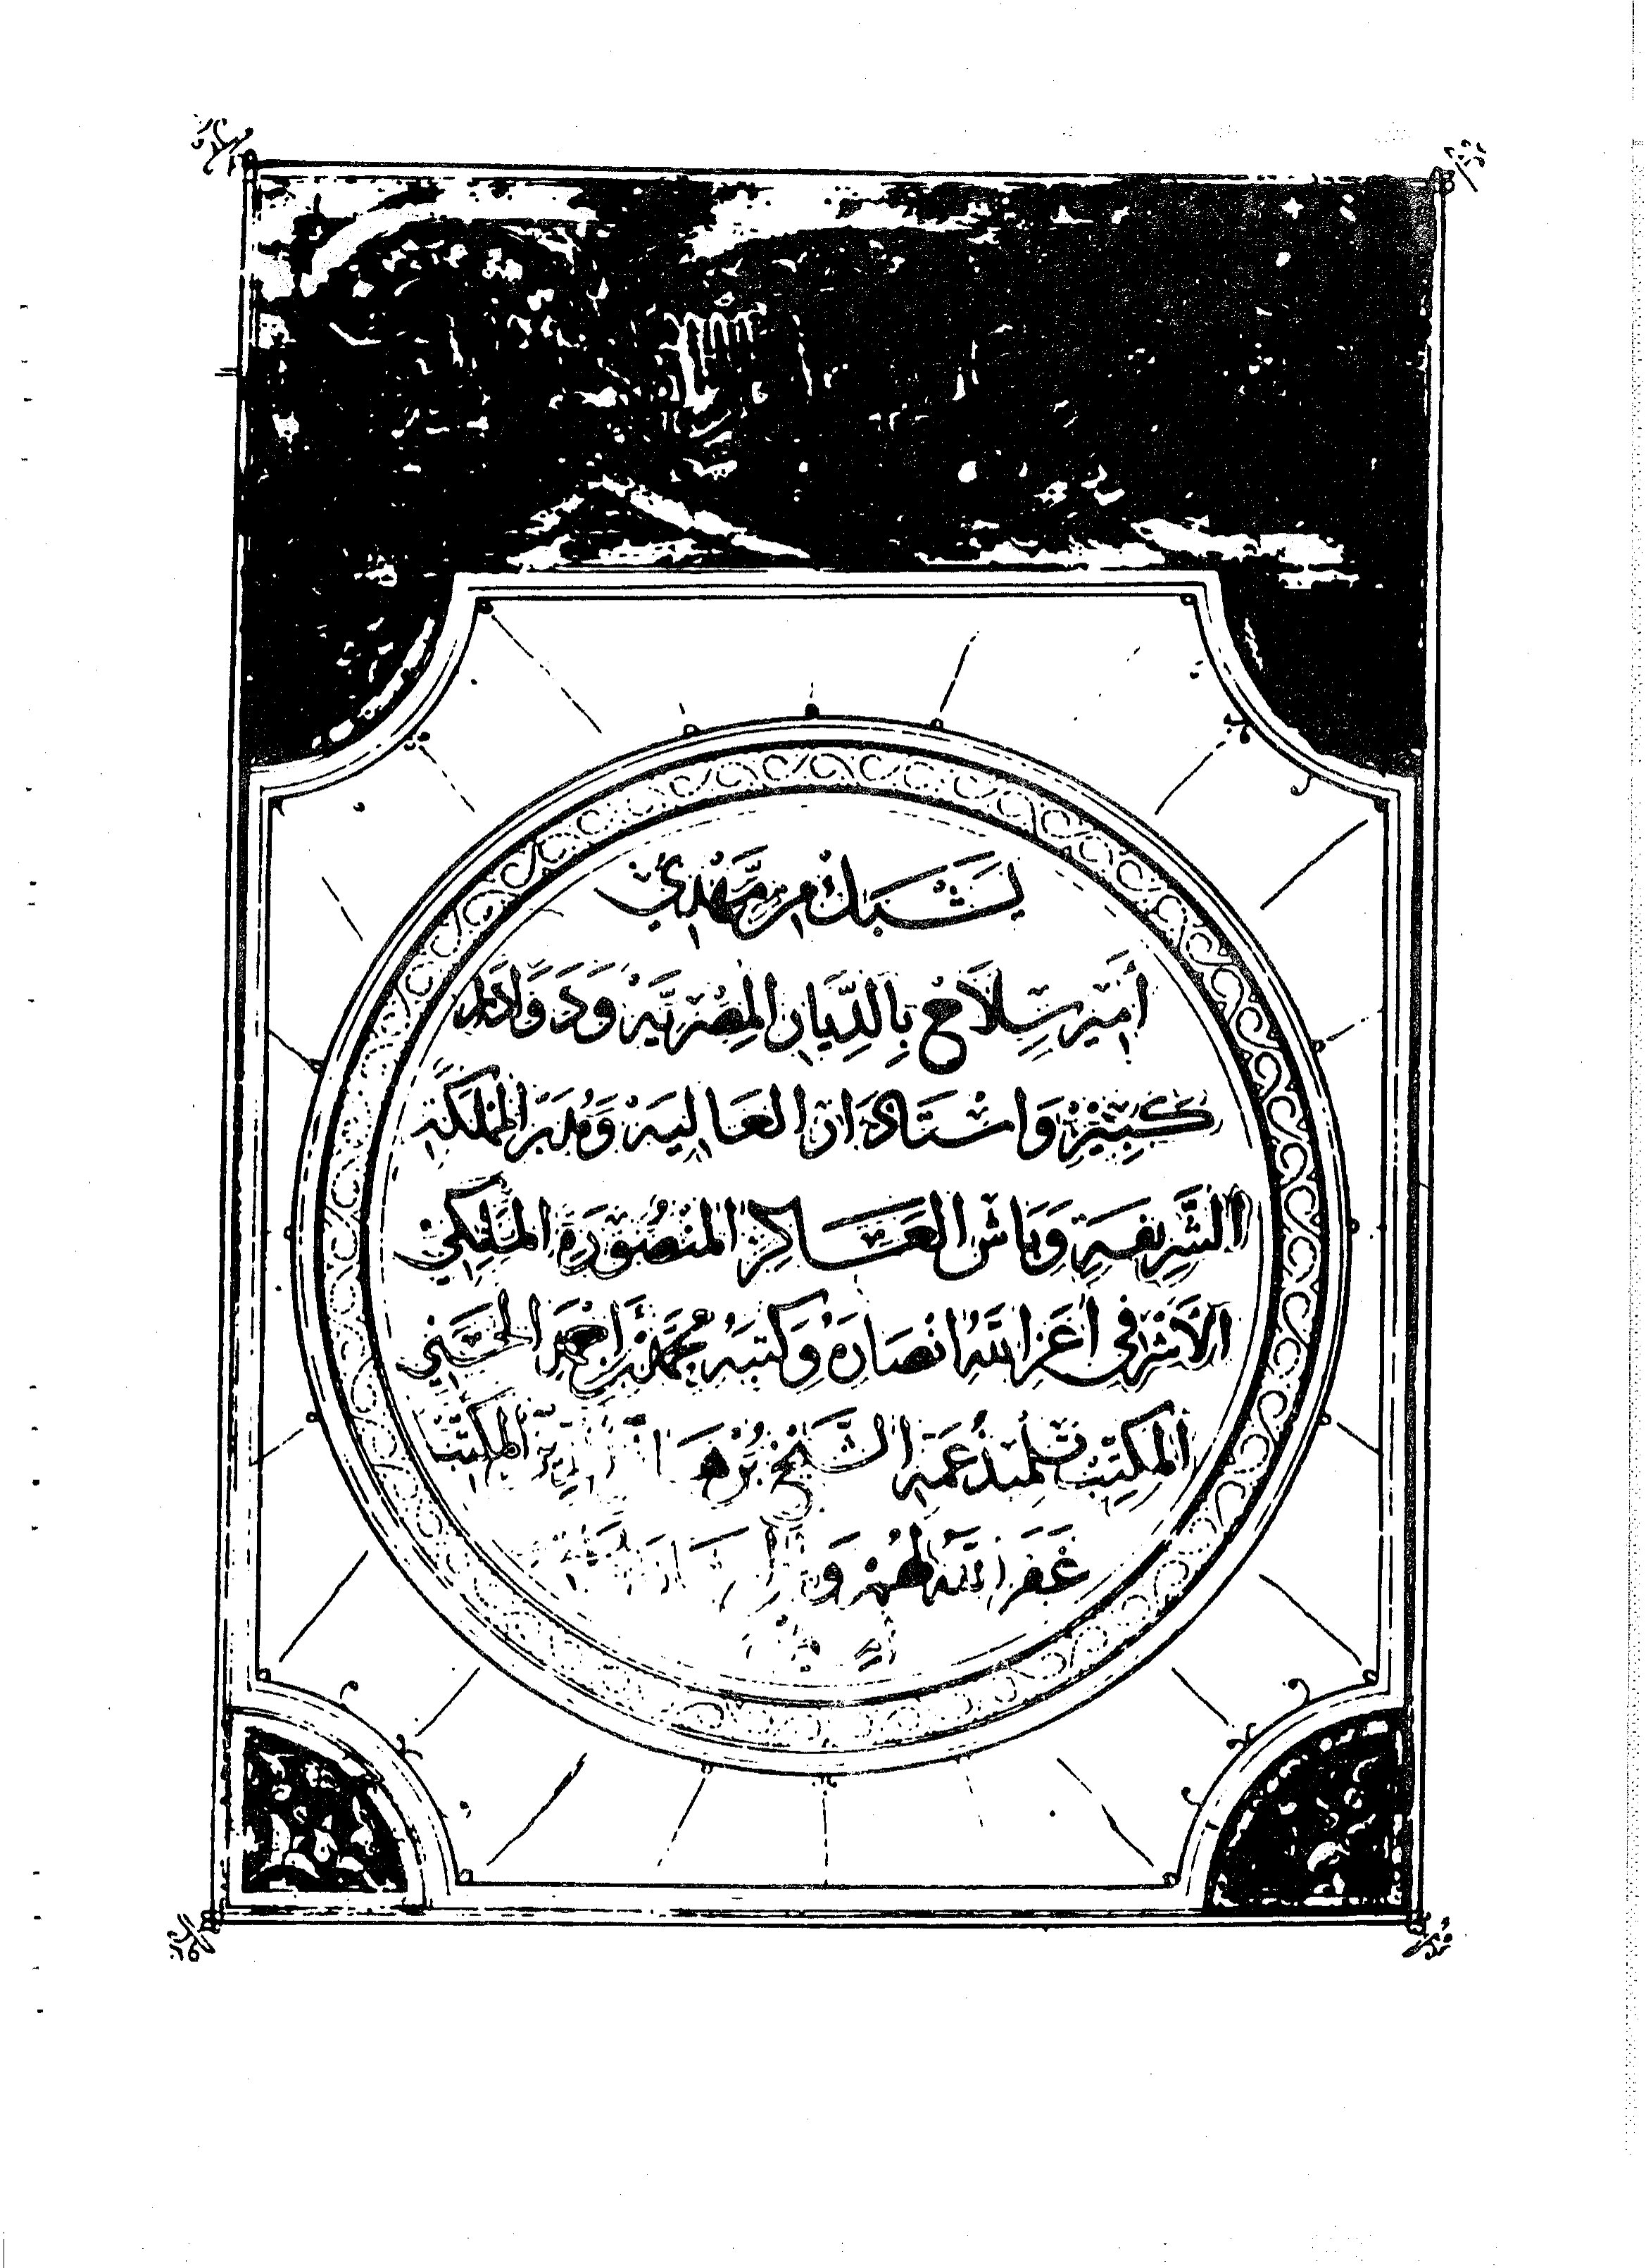 يَشْبَك من مَهْدِي
أَمِير سِلَاح بِالدِّيَارِ المِصْرِيَّة وَدَوَادَار
كَبِير وَاسْتَادَار العَالِيَة وَمُدَبِّر المَمْلَكَة
الشَّرِيفَة وَبَاش العَسَاكِر المَنْصُورَة المَلَكِي
الأَشْرَفِي أَعَزَّ اللهُ انْصَارَهُ وَكَتَبَهُ مُحَمَّد بْن أَحْمَد الحَسَنِي
المكتب تلميذ عَمِّهِ الشَّيْخ بُرْهَا المكتب
غَفَرَ اللهُ لَهُمْ وَ